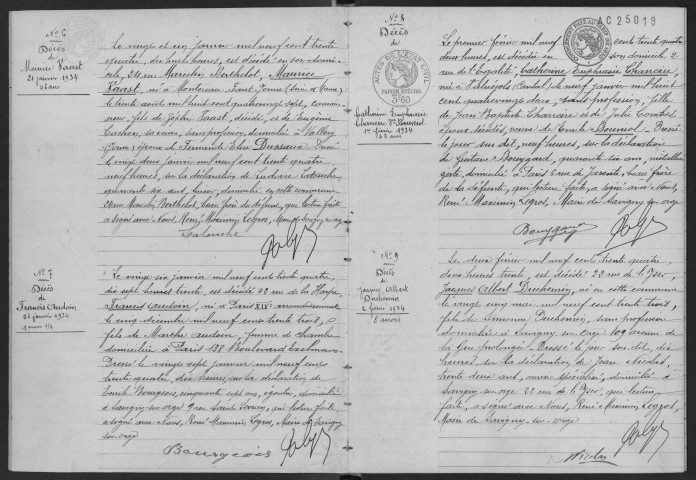 N° 6
Décès
de
Maurice Vaast
21 janvier 1934
Le vingt et un janvier mil neuf cent trente
quatre, dix huit heures, est décédé en son domi-
cile, 24 rue Marcelin Berthelot, Maurice
Vaast, né à Montereau
le trente août mil huit cent quatre vingt sept,
fils de Joseph Vaast, décédé, et de Eugénie
Cochon, sa veuve, sans profession, domiciliée à
époux de Fernande Elise Dussaux. Dressé
le vingt deux janvier mil neuf cent trente quatre
neuf heures, sur la déclaration de Ludovic Latouche
quarante six ans, domicilié en cette commune
rue Marcelin Berthelot, beau frère du défunt, qui, lecture faite
a signé avec Nous, René, Maximin Legros, Maire de Savigny sur orge
Latouche
N° 7
Décès
de
Francis Audoin
26 janvier 1934
Le vingt six janvier mil neuf cent trente quatre,
dix sept heures trente, est décédé 42 rue de la
Francis Audoin, né à Paris XIV° arrondissement
le cinq décembre mil neuf cent trente trois,
fils de Marthe Audoin, femme de chambre
domiciliée à Paris 138 Boulevard Exelmans
Dressé le vingt sept janvier mil neuf cent
trente quatre, dix heures, sur la déclaration de
Emile Bourgeois, cinquante sept ans, domicilié
à Savigny sur orge 9 rue qui, lecture faite,
a signé avec Nous, René Maximin Legros, Maire de Savigny
sur orge
Bourgeois
N° 8
Décès
de
Catherine Euphrasie
Charrière Vve Bouniol
1er février 1934
ACTES DE L'ETAT CIVIL
PAPIER SPECIAL
3F60
AC 25019
Le premier février mil neuf cent trente quatre
deux heures, est décédée en son domicile 2
rue de l'Egalité, Catherine Euphrasie Charrière
née à (Cantal) le neuf janvier mil huit
cent quatre vingt douze, sans profession, fille
de Jean Baptiste Charrière et de Julie Combes
époux décédés, veuve de Emile Bouniol. Dressé
le jour sus dit, neuf heures, sur la déclaration
de Gustave Bouygard, quarante six ans,
domicilié à Paris 6 rue beau frère
de la défunte, qui, lecture faite, a signé avec Nous,
René Maximin Legros, Maire de Savigny sur orge
Bouygard
N° 9
Décès
de
Jacques Albert
Duchemin
2 février 1934
8 mois
Le deux février mil neuf cent trente quatre,
deux heures trente, est décédé 28 rue de l'Yser,
Jacques Albert Duchemin, né en cette commune
le vingt cinq mai mil neuf cent trente trois,
fils de Simonne Duchemin, sans profession
domiciliée à Savigny sur orge 109 avenue de
la Gare prolongée. Dressé le jour sus dit, dix
heures sur la déclaration de Jean Nicolas,
trente deux ans, ouvrier spécialisé, domicilié à
Savigny sur orge 28 rue de l'Yser, qui, lecture
faite, a signé avec Nous, René Maximin Legros,
Maire de Savigny sur orge
Nicolas